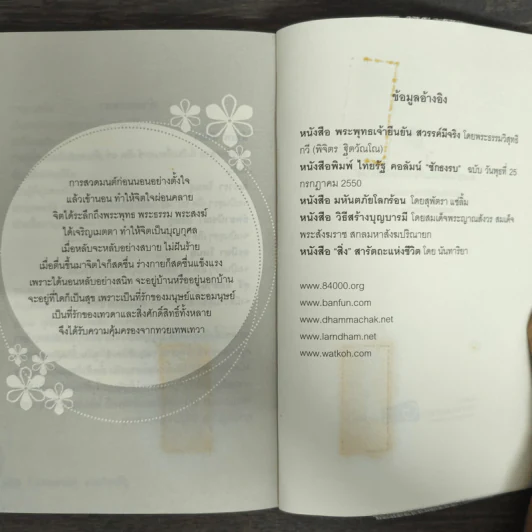 การสวดมนต์ก่อนนอนอย่างตั้งใจ
แล้วเข้านอน ทำให้จิตใจผ่อนคลาย
จิตได้ระลึกถึงพระพุทธ พระธรรม พระสงฆ์
ได้เจริญเมตตา ทำให้จิตเป็นบุญกุศล
เมื่อหลับจะหลับอย่างสบาย ไม่ฝันร้าย
เมื่อตื่นขึ้นมาจิตใจก็สดชื่น ร่างกายก็สดชื่นแข็งแรง
เพราะได้นอนหลับอย่างสนิท จะอยู่บ้านหรืออยู่นอกบ้าน
จะอยู่ที่ใดก็เป็นสุข เพราะเป็นที่รักของมนุษย์และอมนุษย์
เป็นที่รักของเทวดาและสิ่งศักดิ์สิทธิ์ทั้งหลาย
จึงได้รับความคุ้มครองจากทวยเทพเทวา
ข้อมูลอ้างอิง
หนังสือ พระพุทธเจ้ายืนยัน สวรรค์มีจริง โดยพระธรรมวิสุทธิ
กวี (พิจิตร ฐิตวัณโณ)
หนังสือพิมพ์ ไทยรัฐ คอลัมน์ "ชักธงรบ" ฉบับ วันพุธที่ 25
กรกฎาคม 2550
หนังสือ มหันตภัยโลกร้อน โดยสุพัตรา แซ่ลิ้ม
หนังสือ วิธีสร้างบุญบารมี โดยสมเด็จพระญาณสังวร สมเด็จ
พระสังฆราช สกลมหาสังฆปริณายก
หนังสือ "สิ่ง" สารัตถะแห่งชีวิต โดย นันทาริยา
www.84000.org
www.banfun.com
www.dhammachak.net
www.lamdham.net
www.watkoh.com